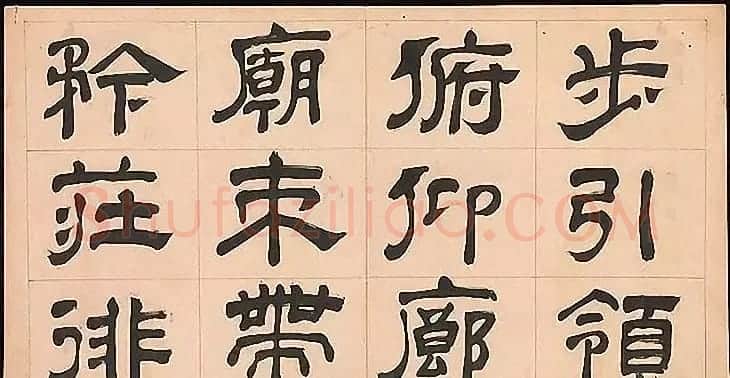 步引領
俯仰廊
廟束帶
矜莊徘
Shufaziliao.COM